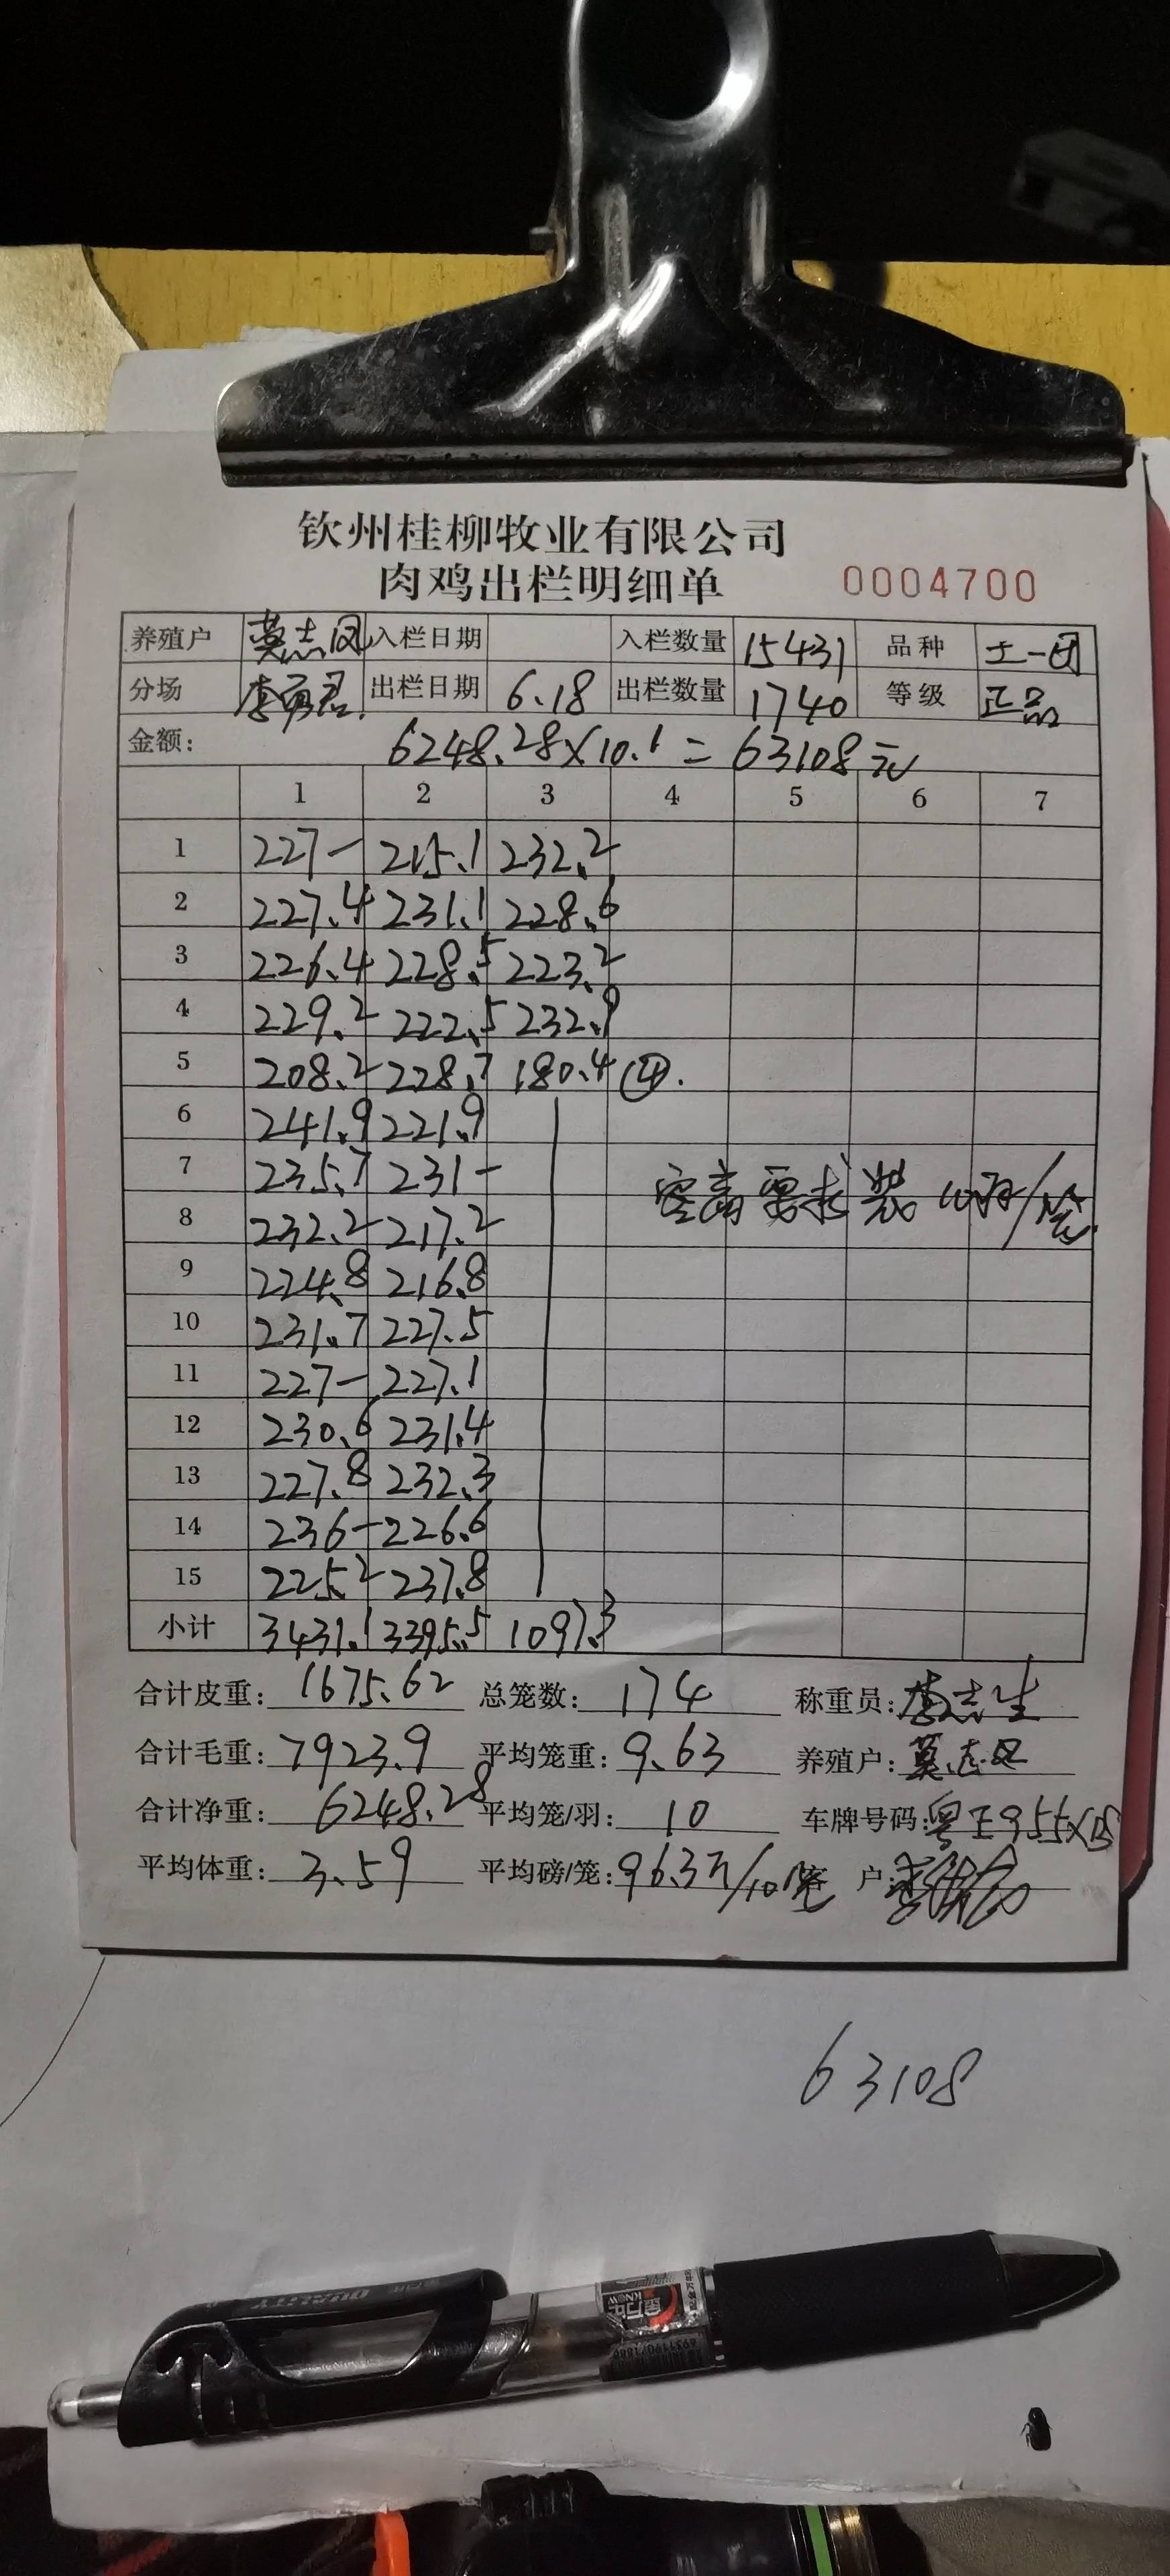 钦州桂柳牧业有限公司
肉鸡出栏明细单 0004700
养殖户 莫志凤 入栏日期 入栏数量 15431 品种 土一团
分场 李勇君. 出栏日期 6.18 出栏数量 1740 等级 正品
金额: 6248.28×10.1=63108元
1 2 3 4 5 6 7
1 227- 215.1 232.2
2 227.4 231.1 228.6
3 226.4 228.5 223.2
4 229.2 222.5 232.9
5 208.2 228.7 180.4 ④.
6 241.9 221.9
7 235.7 231-
8 232.2 217.2
9 224.8 216.8
10 231.7 227.5
11 227- 227.1
12 230.6 231.4
13 227.8 232.3
14 236- 226.6
15 225.2 237.8
客户需求装10羽/笼
小计 3431.1 3395.5 1097.3
合计皮重: 1675.62 总笼数: 174 称重员: 李志生
合计毛重: 7923.9 平均笼重: 9.63 养殖户: 莫志凤
合计净重: 6248.28 平均笼/羽: 10 车牌号码:
平均体重: 3.59 平均磅/笼: 96.3斤/10笼 客 户:
63108
KNOW